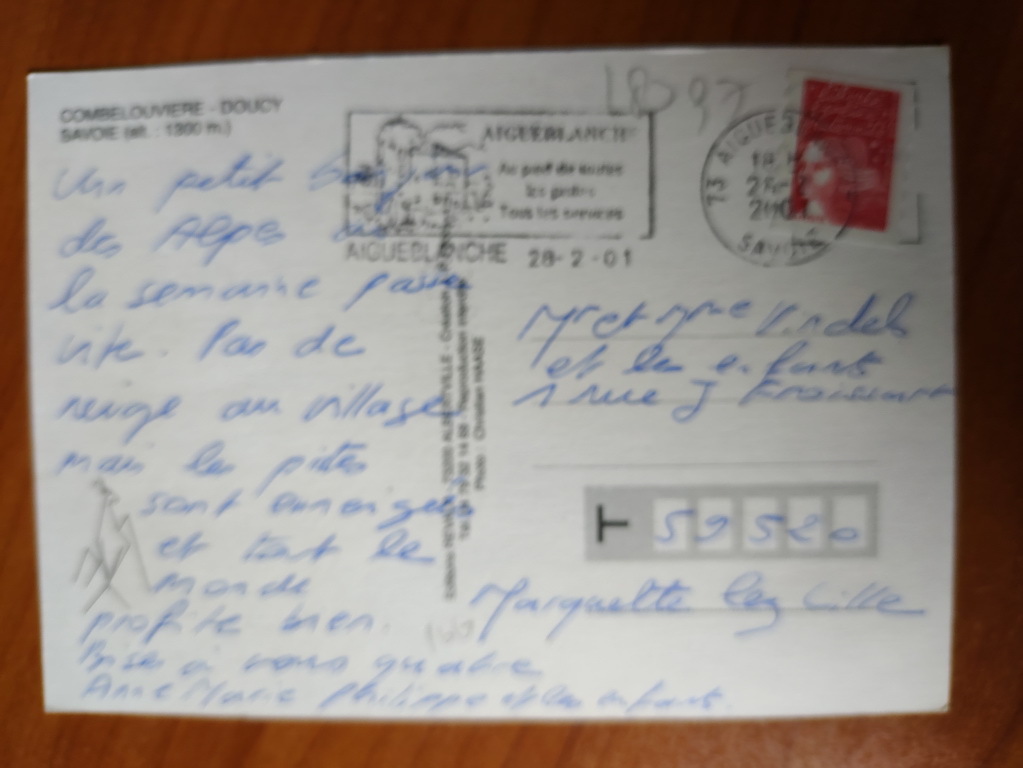 COMBELOUVIERE - DOUCY
SAVOIE (alt. : 1300 m.)
Un petit bonjour
des Alpes où
la semaine passe
vite. Pas de
neige au village
mais les pistes
sont enneigées
et tout le
monde
profite bien.
Bises à vous quatre
Anne Marie Philippe et les enfants.
AIGUEBLANCHE
Au pied de toutes
les pistes
Tous les services
AIGUEBLANCHE 28-2-01
73 AIGUEBLANCHE
SAVOIE
Mr et Mme
et les enfants
1 rue J Froissart
T 59520
Marquette lez Lille
Photo : Christian HAASE